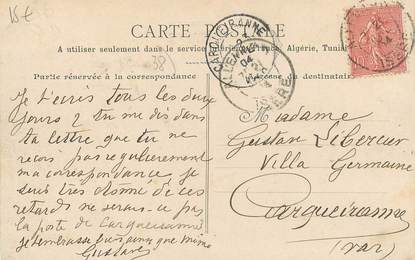 15€
CARTE POSTALE
A utiliser seulement dans le service intérieur, France, Algérie, Tunisie
Partie réservée à la correspondance
du destinataire
(38)
CARQUEIRANNE
ALLEVARD
ISERE
04
Je t'écris tous les deux
jours & tu me dis dans
ta lettre que tu ne
recois pas regulierement
ma correspondance, je
suis très étonné de ces
retards ne serais-ce pas
la poste de Carqueiranne
je t'embrasse bien ainsi que Mimi
Gustave
Madame
Gustave Libercier
Villa Germaine
Carqueiranne
(Var)